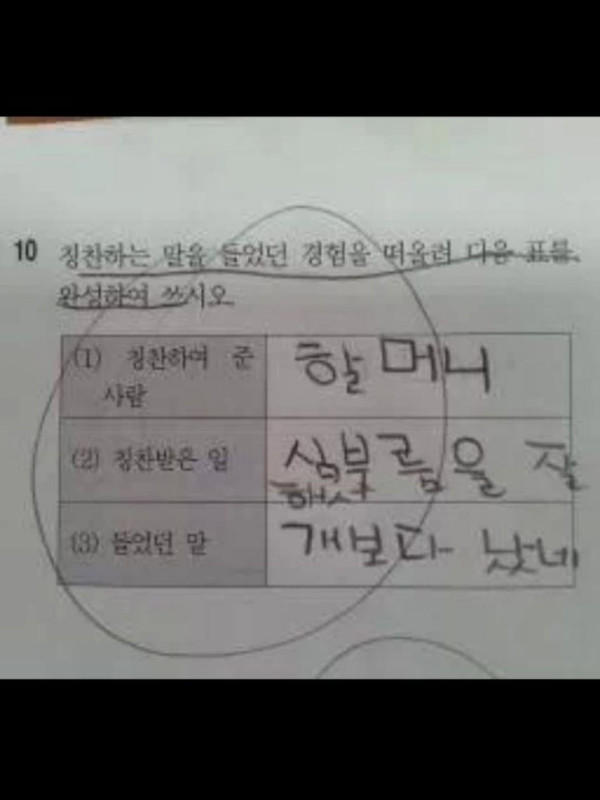 10 칭찬하는 말을 들었던 경험을 떠올려 다음 표를
완성하여 쓰시오.
(1) 칭찬하여 준
사람
할머니
(2) 칭찬받은 일
심부름을 잘
해서
(3) 들었던 말
개보다 낫네